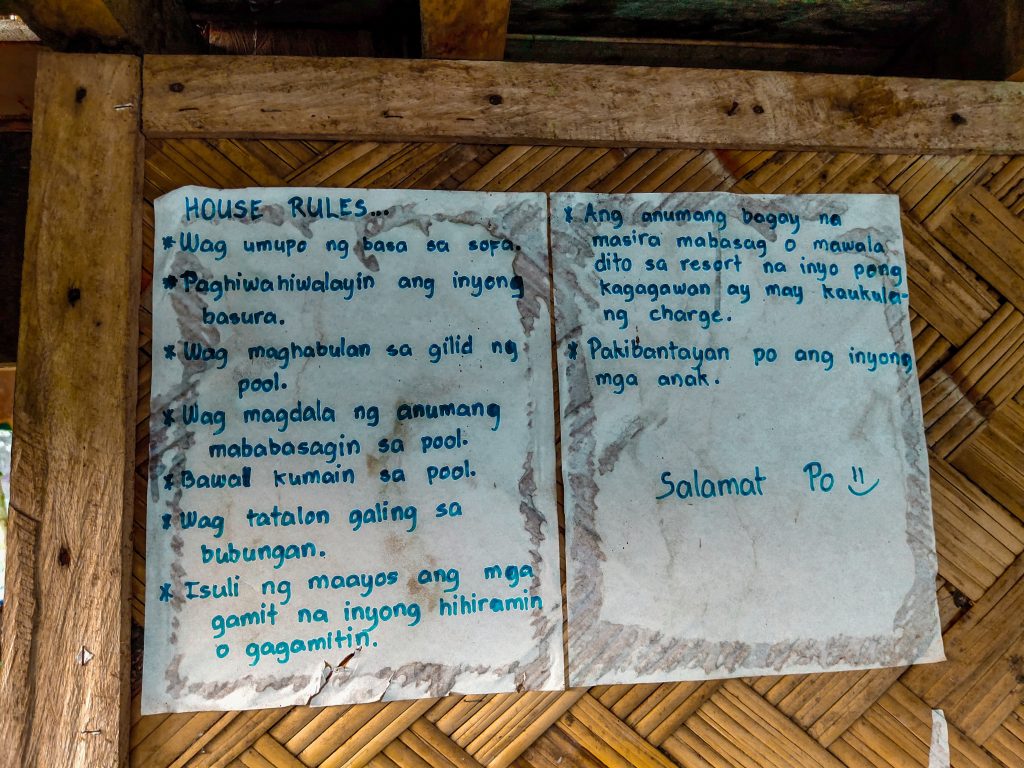 HOUSE RULES...
* Wag umupo ng basa sa sofa.
* Paghiwahiwalayin ang inyong
basura.
* Wag maghabulan sa gilid ng
pool.
* Wag magdala ng anumang
mababasagin sa pool.
* Bawal kumain sa pool.
* Wag tatalon galing sa
bubungan.
* Isuli ng maayos ang mga
gamit na inyong hihiramin
o gagamitin.
* Ang anumang bagay na
masira mabasag o mawala
dito sa resort na inyo pong
kagagawan ay may kaukula-
ng charge.
* Pakibantayan po ang inyong
mga anak.
Salamat Po